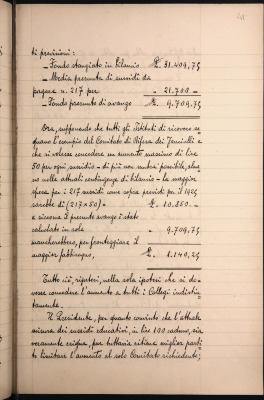 di previsioni:
– Fondo stanziato in bilancio £. 31.409,75
– Media presunta di sussidi da
pagare n. 217 per – 21.700 –
– Fondo presunto di avanzo £. 9.709,75
Ora, supponendo che tutti gli Istituti di ricovero se-
guano l'esempio del Comitato di Difesa dei fanciulli e
che si volesse concedere un aumento massimo di lire
50 per ogni sussidio – di più non sarebbe possibile, alme-
no nelle attuali contingenze di bilancio – la maggior
spesa per i 217 sussidi come sopra previsti per il 1925
sarebbe di (217 x 50) = £. 10.850 –
e siccome il presunto avanzo è stato
calcolato in sole " 9.709,75
mancherebbero, per fronteggiare il
maggior fabbisogno, £. 1.140,25
Tutto ciò, ripetesi, nella sola ipotesi che si do-
vesse concedere l'aumento a tutti i Collegi indistin-
tamente.
Il Presidente, per quanto convinto che l'attuale
misura dei sussidi educativi, in lire 100 caduno, sia
veramente esigua, pur tuttavia ritiene miglior parti-
to limitare l'aumento al solo Comitato richiedente;